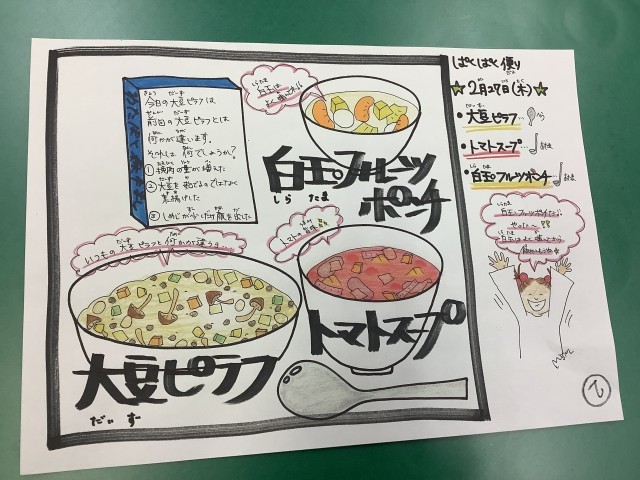 ぱくぱく便り
☆2月27日(木)☆
・大豆ピラフ…
・トマトスープ…
・白玉フルーツポンチ…
今日の大豆ピラフは
前回の大豆ピラフとは
何かが違います。
それは何でしょうか?
① 挽肉の量が増えた
② 大豆を茹でるのではなく
素揚げした
③ しめじが少しだけ顔を出した
白玉は
よく噛んで
しらたま
白玉フルーツ
ポンチ
いつもの大豆ピラフと何かが違う
トマトの
トマトスープ
大豆ピラフ
だいず
白玉フルーツポンチだ
やったぁ〜